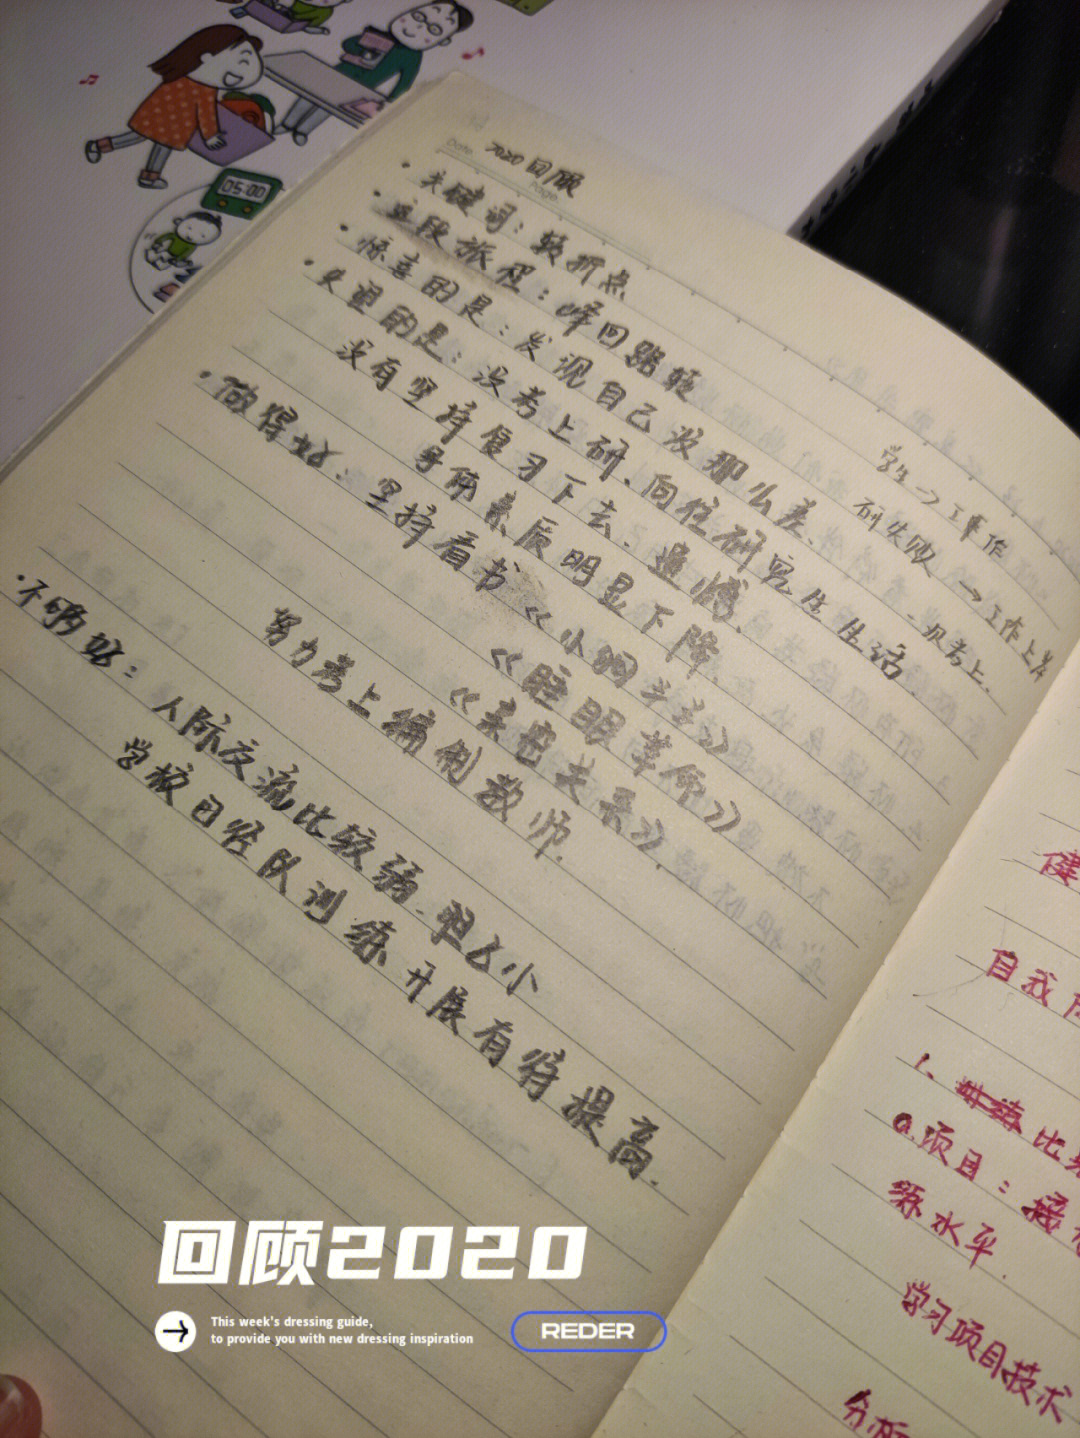 05:00
Date
Page
2020回顾
·关键词：转折点 学生→工作
·这段旅程：峰回路转 研失败→工作上岸
·惊喜的是：发现自己没那么差、一次考上.
·失望的是：没考上研、向往研究生生活
没有坚持复习下去、遗憾.
身体素质明显下降
·做得好：坚持看书《小狗钱钱》
《睡眠革命》
《亲密关系》.
努力考上编制教师.
·不够好：人际交流比较弱.胆么小
学校田径队训练开展有待提高.
健
自我
1、
比
a.项目：
练水平.
学习项目技术
分析
回顾2020
This week's dressing guide,
to provide you with new dressing inspiration
REDER